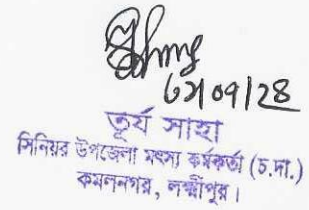 ৩১/০৭/২৪
তূর্য সাহা
সিনিয়র উপজেলা মৎস্য কর্মকর্তা (চ.দা.)
কমলনগর, লক্ষ্মীপুর।